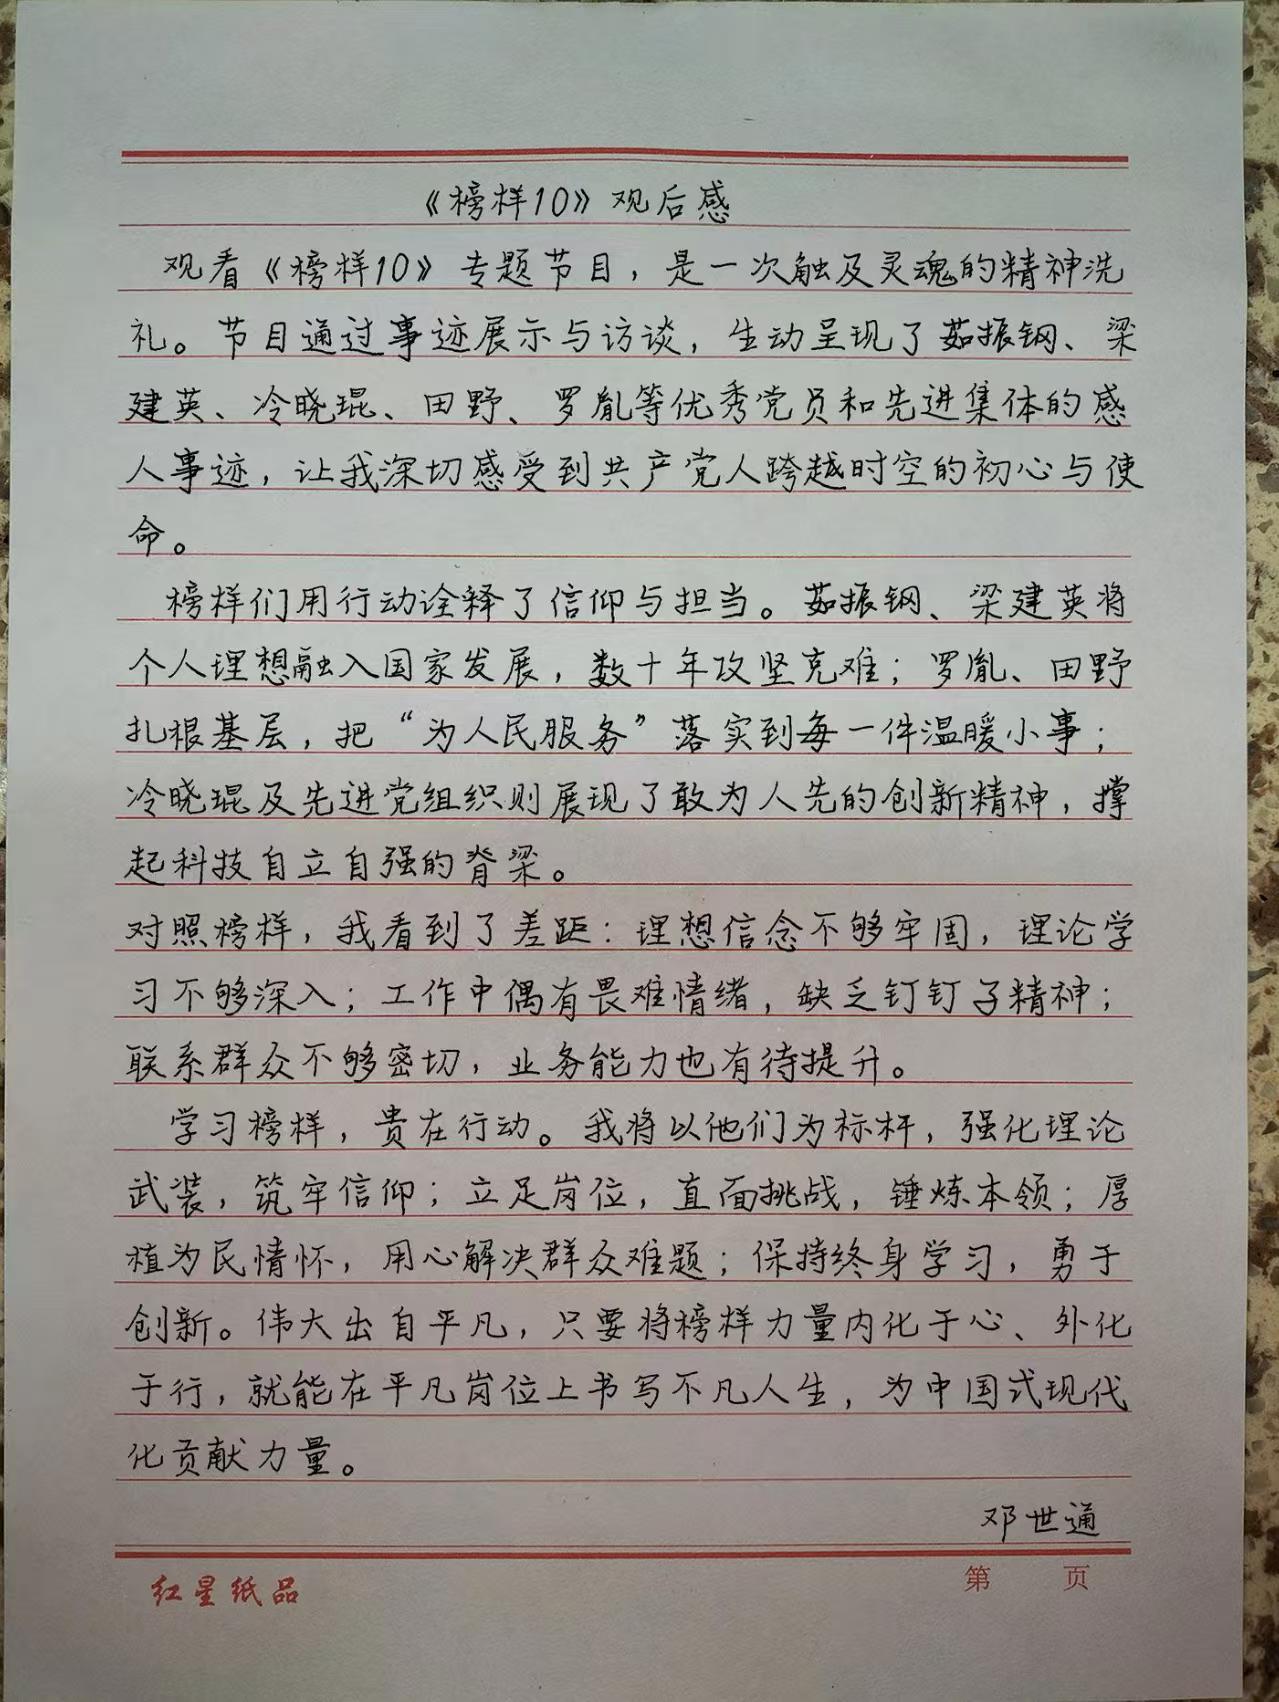 《榜样10》观后感
观看《榜样10》专题节目，是一次触及灵魂的精神洗
礼。节目通过事迹展示与访谈，生动呈现了茹振钢、梁
建英、冷晓琨、田野、罗胤等优秀党员和先进集体的感
人事迹，让我深切感受到共产党人跨越时空的初心与使
命。
榜样们用行动诠释了信仰与担当。茹振钢、梁建英将
个人理想融入国家发展，数十年攻坚克难；罗胤、田野
扎根基层，把“为人民服务”落实到每一件温暖小事；
冷晓琨及先进党组织则展现了敢为人先的创新精神，撑
起科技自立自强的脊梁。
对照榜样，我看到了差距：理想信念不够牢固，理论学
习不够深入；工作中偶有畏难情绪，缺乏钉钉子精神；
联系群众不够密切，业务能力也有待提升。
学习榜样，贵在行动。我将以他们为标杆，强化理论
武装，筑牢信仰；立足岗位，直面挑战，锤炼本领；厚
植为民情怀，用心解决群众难题；保持终身学习，勇于
创新。伟大出自平凡，只要将榜样力量内化于心、外化
于行，就能在平凡岗位上书写不凡人生，为中国式现代
化贡献力量。
邓世通
红星纸品 第 页